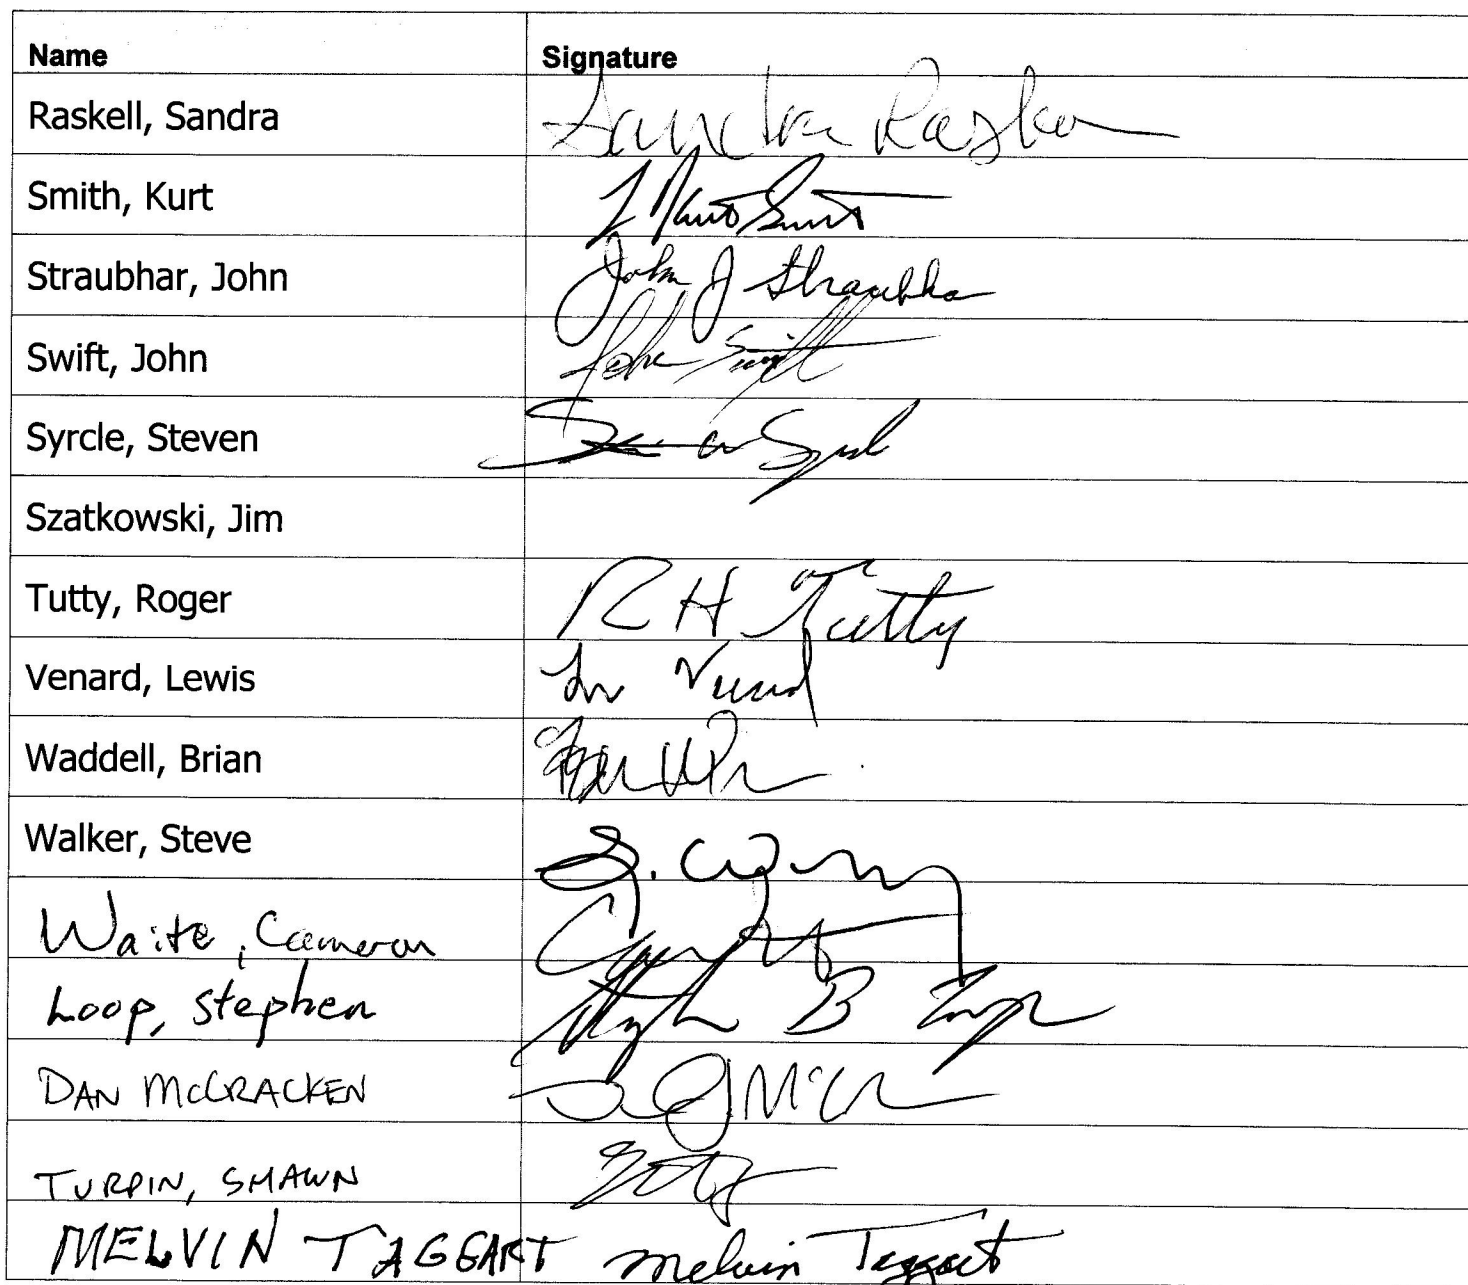 Name Signature
Raskell, Sandra Sandra Raske
Smith, Kurt
Straubhar, John John J Straubha
Swift, John John Swift
Syrcle, Steven
Szatkowski, Jim
Tutty, Roger R H Tutty
Venard, Lewis
Waddell, Brian
Walker, Steve
Waite, Cameron
Loop, Stephen Stephen B Loop
DAN McCRACKEN
TURPIN, SHAWN
MELVIN TAGGART melvin Taggart